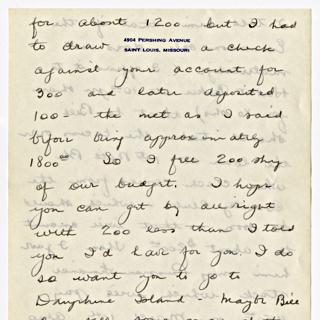 for about 1200 but I had
4904 PERSHING AVENUE
SAINT LOUIS, MISSOURI
to draw a check
against your account for
300 and later deposited
100 - the net as I said
before being approximately
1800⁰⁰ So I feel 200 shy
of our budget. I hope
you can get by all right
with 200 less than I told
you I'd have for you. I do
so want you to go to
Dauphine Island - Maybe Bill